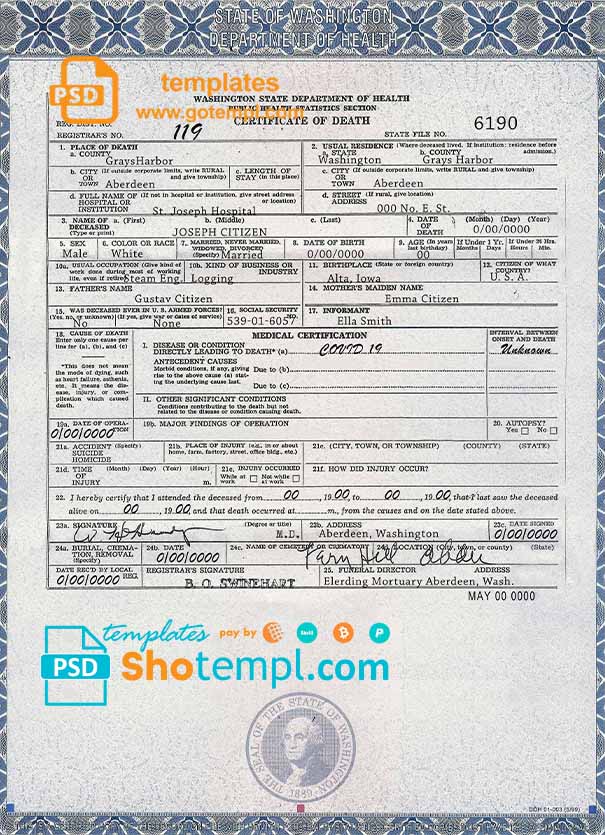 STATE OF WASHINGTON
DEPARTMENT OF HEALTH
PSD
templates
www.gotempl.com
WASHINGTON STATE DEPARTMENT OF HEALTH
PUBLIC HEALTH STATISTICS SECTION
CERTIFICATE OF DEATH
REG. DIST. NO.
REGISTRAR'S NO. 119
STATE FILE NO. 6190
1. PLACE OF DEATH
a. COUNTY
GraysHarbor
2. USUAL RESIDENCE (Where deceased lived. If institution: residence before admission.)
a. STATE b. COUNTY
Washington Grays Harbor
b. CITY (If outside corporate limits, write RURAL
OR and give township)
TOWN Aberdeen
c. LENGTH OF
STAY (in this place)
c. CITY (If outside corporate limits, write RURAL and give township)
OR
TOWN Aberdeen
d. FULL NAME OF (If not in hospital or institution, give street address
HOSPITAL OR or location)
INSTITUTION St. Joseph Hospital
d. STREET (If rural, give location)
ADDRESS
000 No. E. St.
3. NAME OF a. (First) b. (Middle) c. (Last)
DECEASED
(Type or print) JOSEPH CITIZEN
4. DATE (Month) (Day) (Year)
OF
DEATH 0/00/0000
5. SEX
Male
6. COLOR OR RACE
White
7. MARRIED, NEVER MARRIED,
WIDOWED, DIVORCED
(Specify) Married
8. DATE OF BIRTH
0/00/0000
9. AGE (In years
last birthday)
00
If Under 1 Yr.
Months Days
If Under 24 Hrs.
Hours Min.
10a. USUAL OCCUPATION (Give kind of
work done during most of working
life, even if retired) Steam Eng.
10b. KIND OF BUSINESS OR
INDUSTRY
Logging
11. BIRTHPLACE (State or foreign country)
Alta, Iowa
12. CITIZEN OF WHAT
COUNTRY?
U.S.A.
13. FATHER'S NAME
Gustav Citizen
14. MOTHER'S MAIDEN NAME
Emma Citizen
15. WAS DECEASED EVER IN U. S. ARMED FORCES?
(Yes, no, or unknown) (If yes, give war or dates of service)
No None
16. SOCIAL SECURITY
NO.
539-01-6057
17. INFORMANT
Ella Smith
18. CAUSE OF DEATH
Enter only one cause per
line for (a), (b), and (c)
*This does not mean
the mode of dying, such
as heart failure, asthenia,
etc. It means the dis-
ease, injury, or com-
plication which caused
death.
MEDICAL CERTIFICATION
I. DISEASE OR CONDITION
DIRECTLY LEADING TO DEATH* (a) COVID 19
ANTECEDENT CAUSES
Morbid conditions, if any, giving
rise to the above cause (a) stat-
ing the underlying cause last.
Due to (b)
Due to (c)
II. OTHER SIGNIFICANT CONDITIONS
Conditions contributing to the death but not
related to the disease or condition causing death.
INTERVAL BETWEEN
ONSET AND DEATH
Unknown
19a. DATE OF OPERA-
TION
0/00/0000
19b. MAJOR FINDINGS OF OPERATION
20. AUTOPSY?
Yes No
21a. ACCIDENT (Specify)
SUICIDE
HOMICIDE
21b. PLACE OF INJURY (e.g., in or about
home, farm, factory, street, office bldg., etc.)
21c. (CITY, TOWN, OR TOWNSHIP) (COUNTY) (STATE)
21d. TIME (Month) (Day) (Year) (Hour)
OF
INJURY m.
21e. INJURY OCCURRED
While at Not while
work at work
21f. HOW DID INJURY OCCUR?
22. I hereby certify that I attended the deceased from 00, 1900, to 00, 1900, that I last saw the deceased
alive on 00, 1900, and that death occurred at m., from the causes and on the date stated above.
23a. SIGNATURE (Degree or title)
M.D.
23b. ADDRESS
Aberdeen, Washington
23c. DATE SIGNED
0/00/0000
24a. BURIAL, CREMA-
TION, REMOVAL
(Specify)
24b. DATE
0/00/0000
24c. NAME OF CEMETERY OR CREMATORY
24d. LOCATION (City, town, or county) (State)
Fern Hill
DATE REC'D BY LOCAL
REG.
0/00/0000
REGISTRAR'S SIGNATURE
B. O. SWINEHART
25. FUNERAL DIRECTOR ADDRESS
Elerding Mortuary Aberdeen, Wash.
MAY 00 0000
PSD
templates
pay by
Shotempl.com
THE SEAL OF THE STATE OF WASHINGTON
1889